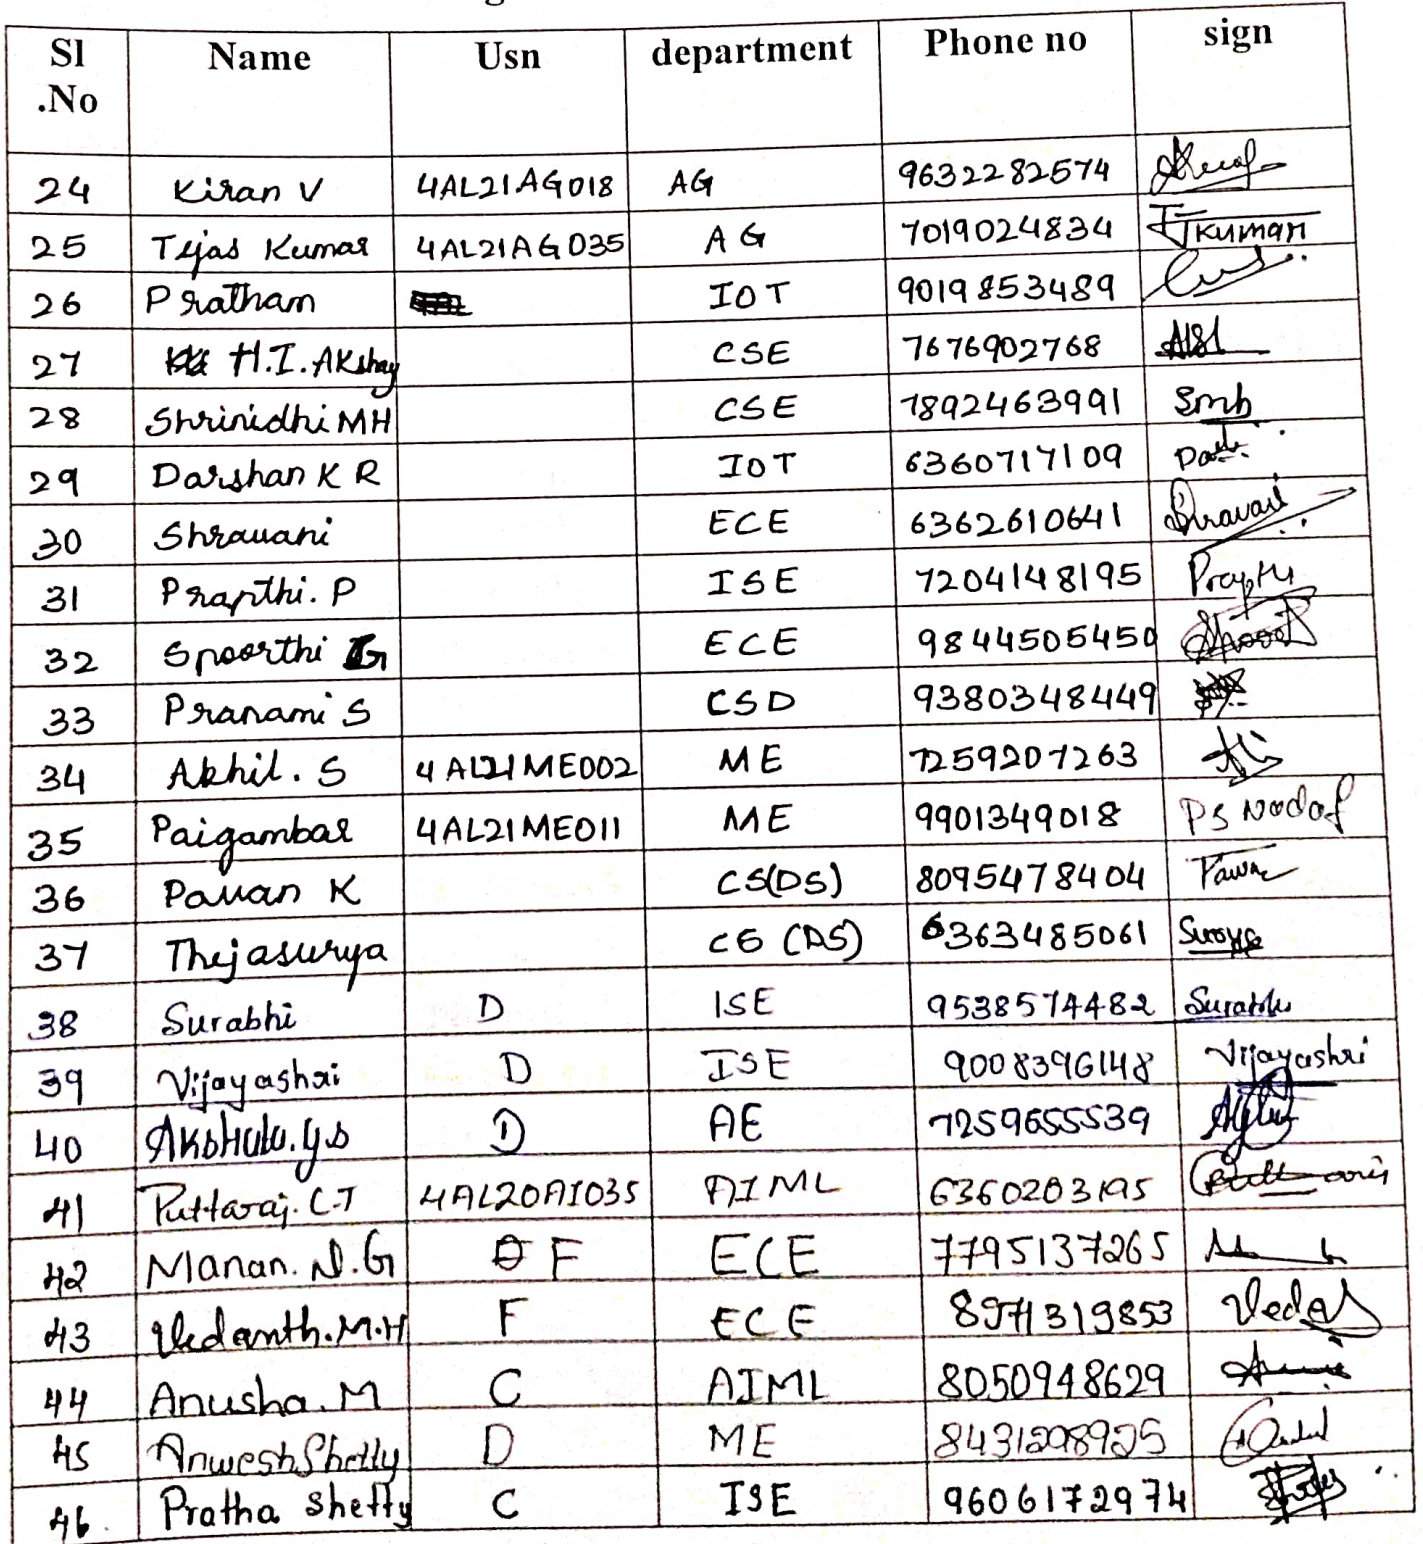 Sl .No Name Usn department Phone no sign
24 Kiran V 4AL21AG018 AG 9632282574
25 Tejas Kumar 4AL21AG035 AG 7019024834 TJKumar
26 Pratham IOT 9019853489
27 H.I.Akshay CSE 7676902768
28 Shrinidhi MH CSE 7892463991 Smh
29 Darshan K R IOT 6360717109
30 Shravani ECE 6362610641 Shravani
31 Prapthi. P ISE 7204148195 Prapthi
32 Spoorthi G ECE 9844505450
33 Pranami S CSD 9380348449
34 Akhil. S 4AL21ME002 ME 7259207263
35 Paigambar 4AL21ME011 ME 9901349018 PS Nadaf
36 Pavan K CS(DS) 8095478404 Pawan
37 Thejasurya CS (DS) 6363485061 Surya
38 Surabhi D ISE 9538574482 Surabhi
39 Vijayashri D ISE 9008396148 Vijayashri
40 D AE 7259655539
41 Puttaraj. C.J 4AL20AI035 AIML 6360203195
42 Manan. N.G F ECE 7795137265
43 Vedanth.M.H F ECE 8971319853
44 Anusha. M C AIML 8050948629
45 Anwesh Shetty D ME 8431298925
46. Pratha Shetty C ISE 9606172974